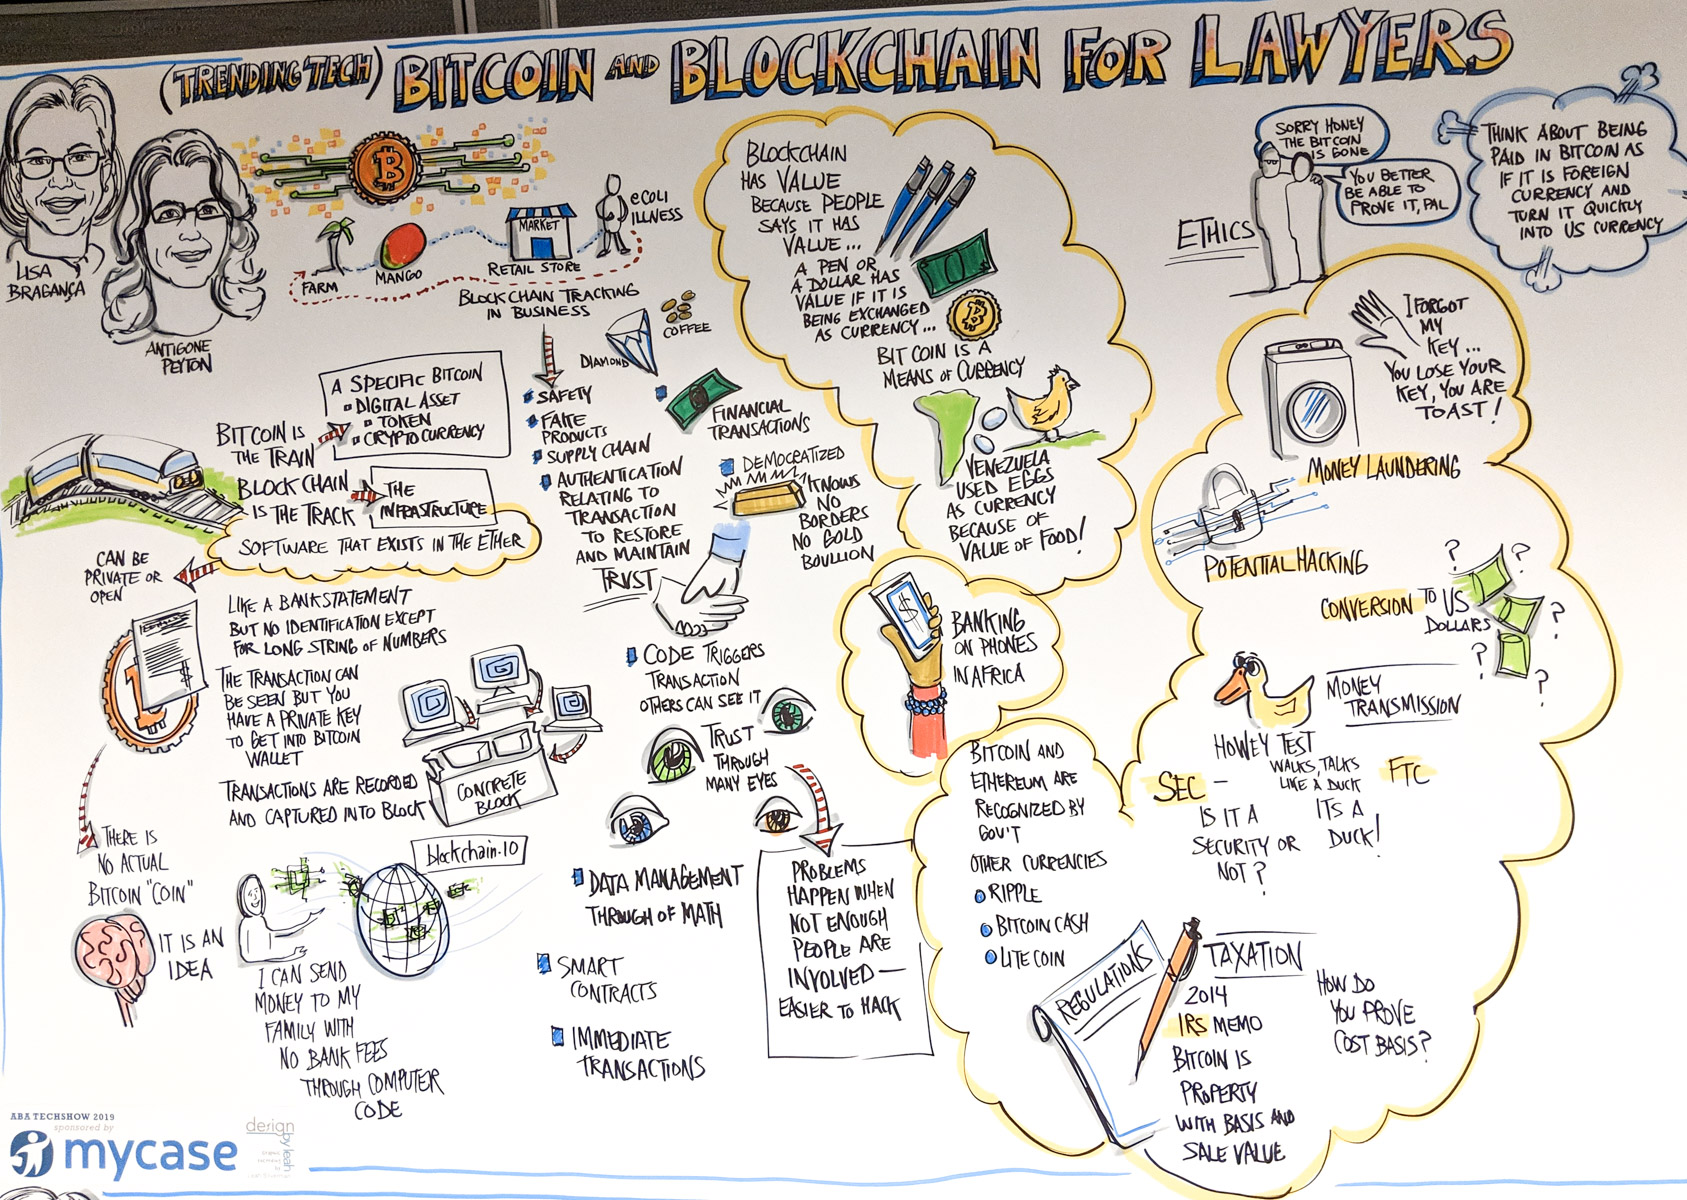 (TRENDING TECH) BITCOIN AND BLOCKCHAIN FOR LAWYERS
LISA
BRAGANÇA
ANTIGONE
PEYTON
B
FARM
MANGO
MARKET
RETAIL STORE
eCOLI
ILLNESS
BLOCKCHAIN TRACKING
IN BUSINESS
DIAMOND
COFFEE
SAFETY
FAKE
PRODUCTS
SUPPLY CHAIN
AUTHENTICATION
RELATING TO
TRANSACTION
TO RESTORE
AND MAINTAIN
TRUST
FINANCIAL
TRANSACTIONS
DEMOCRATIZED
KNOWS
NO
BORDERS
NO GOLD
BOULLION
BITCOIN IS
THE TRAIN
A SPECIFIC BITCOIN
DIGITAL ASSET
TOKEN
CRYPTOCURRENCY
BLOCKCHAIN
IS THE TRACK
THE
INFRASTRUCTURE
SOFTWARE THAT EXISTS IN THE ETHER
CAN BE
PRIVATE OR
OPEN
LIKE A BANK STATEMENT
BUT NO IDENTIFICATION EXCEPT
FOR LONG STRING OF NUMBERS
THE TRANSACTION CAN
BE SEEN BUT YOU
HAVE A PRIVATE KEY
TO GET INTO BITCOIN
WALLET
TRANSACTIONS ARE RECORDED
AND CAPTURED INTO BLOCK
CONCRETE
BLOCK
THERE IS
NO ACTUAL
BITCOIN "COIN"
IT IS AN
IDEA
blockchain.io
I CAN SEND
MONEY TO MY
FAMILY WITH
NO BANK FEES
THROUGH COMPUTER
CODE
CODE TRIGGERS
TRANSACTION
OTHERS CAN SEE IT
TRUST
THROUGH
MANY EYES
DATA MANAGEMENT
THROUGH OF MATH
SMART
CONTRACTS
IMMEDIATE
TRANSACTIONS
PROBLEMS
HAPPEN WHEN
NOT ENOUGH
PEOPLE ARE
INVOLVED —
EASIER TO HACK
BLOCKCHAIN
HAS VALUE
BECAUSE PEOPLE
SAYS IT HAS
VALUE ...
A PEN OR
A DOLLAR HAS
VALUE IF IT IS
BEING EXCHANGED
AS CURRENCY ...
B
BIT COIN IS A
MEANS OF CURRENCY
VENEZUELA
USED EGGS
AS CURRENCY
BECAUSE OF
VALUE OF FOOD!
$
BANKING
ON PHONES
IN AFRICA
BITCOIN AND
ETHEREUM ARE
RECOGNIZED BY
GOV'T
OTHER CURRENCIES
RIPPLE
BITCOIN CASH
LITE COIN
ETHICS
SORRY HONEY
THE BITCOIN
IS GONE
YOU BETTER
BE ABLE TO
PROVE IT, PAL
THINK ABOUT BEING
PAID IN BITCOIN AS
IF IT IS FOREIGN
CURRENCY AND
TURN IT QUICKLY
INTO US CURRENCY
I FORGOT
MY
KEY ...
YOU LOSE YOUR
KEY, YOU ARE
TOAST!
MONEY LAUNDERING
POTENTIAL HACKING
CONVERSION TO US
DOLLARS
? ? ? ? ?
MONEY
TRANSMISSION
HOWEY TEST
WALKS, TALKS
LIKE A DUCK
ITS A
DUCK!
SEC —
IS IT A
SECURITY OR
NOT?
FTC
REGULATIONS
TAXATION
2014
IRS MEMO
BITCOIN IS
PROPERTY
WITH BASIS AND
SALE VALUE
HOW DO
YOU PROVE
COST BASIS?
ABA TECHSHOW 2019
sponsored by
mycase
design
by leah